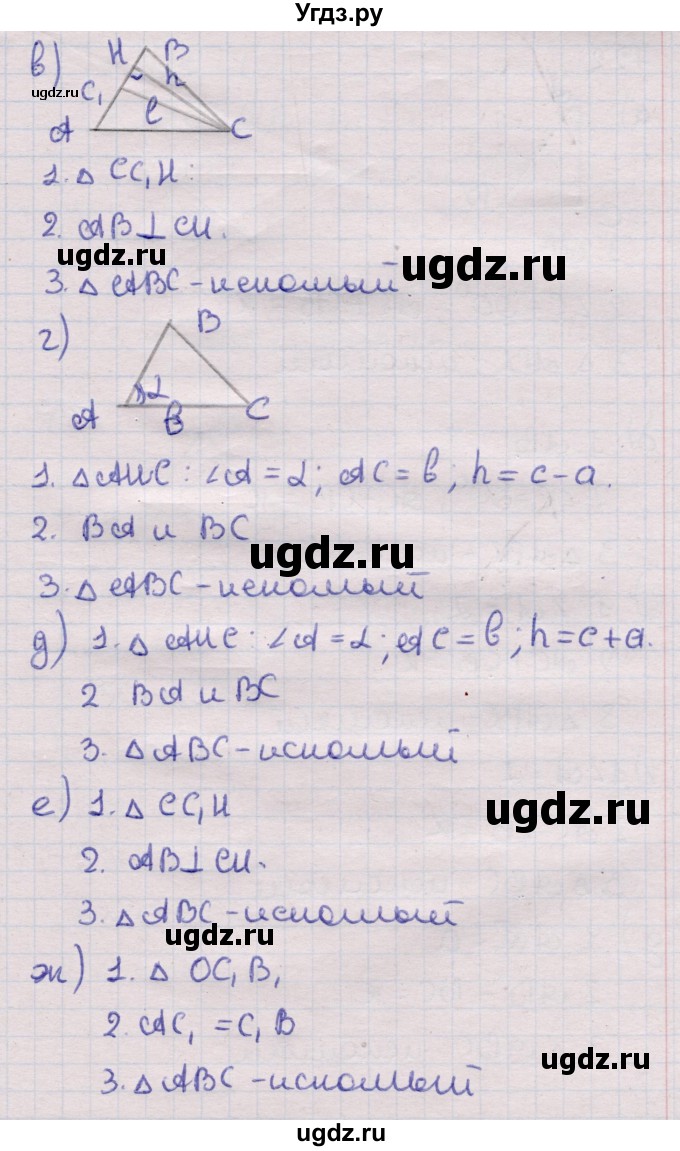 Угдз.ру
в)
H B
h
C₁
ℓ
A C
ugdz.ru
1. Δ CC₁H:
2. AB⊥CH.
ugdz.ru
ugdz.ru
3. Δ ABC - искомый
г)
B
α
A B C
1. Δ AHC: ∠A = α; AC = b; h = c - a.
2. BA и BC
ugdz.ru
3. Δ ABC - искомый
д) 1. Δ AHC: ∠A = α; AC = b; h = c + a.
2 BA и BC
3. Δ ABC - искомый
ugdz.ru
е) 1. Δ CC₁H
2. AB⊥CH.
3. Δ ABC - искомый
ugdz.ru
ж) 1. Δ OC₁B₁
2. AC₁ = C₁B
ugdz.ru
3. Δ ABC - искомый
ugdz.ru